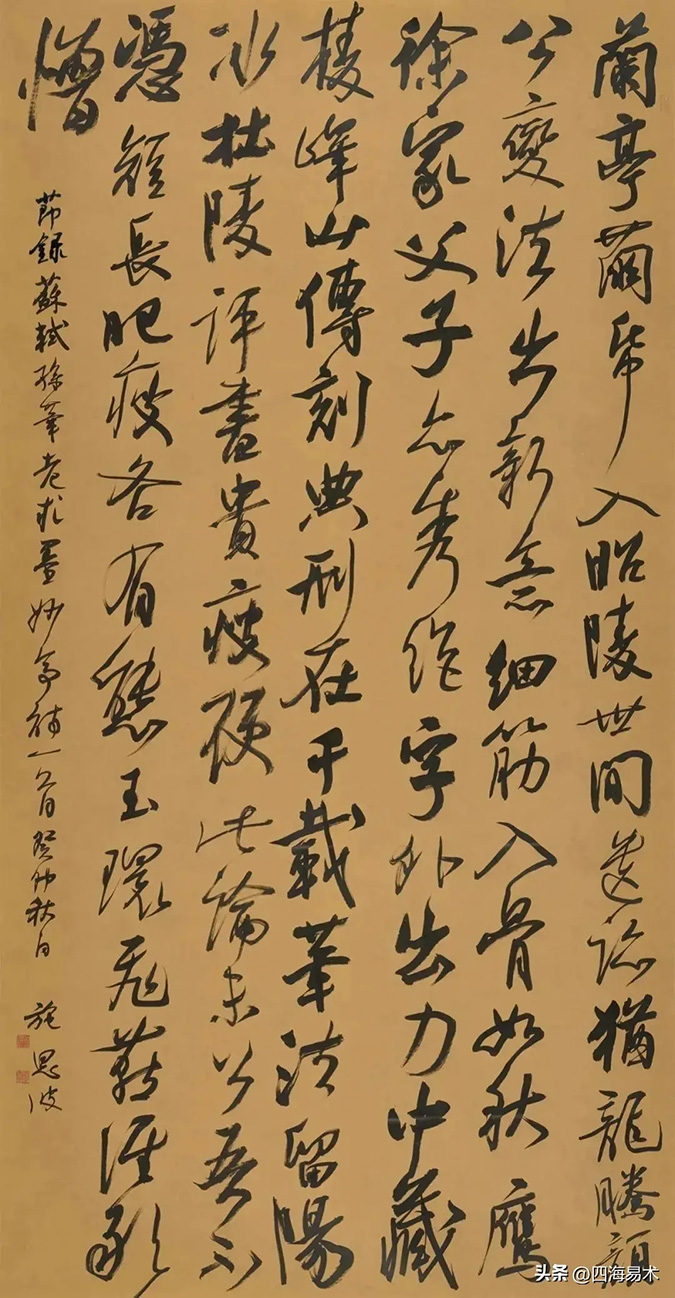 蘭亭繭帋入昭陵世間遺跡猶龍騰顏
公變法出新意細筋入骨如秋鷹
徐家父子亦秀絕字外出力中藏
棱嶧山傳刻典刑在千載筆法留陽
冰杜陵評書貴瘦硬此論未公吾不
憑短長肥瘦各有態玉環飛燕誰敢
憎
節錄蘇軾孫莘老求墨妙亭詩一首癸卯秋日 施恩波
头条 @四海易术